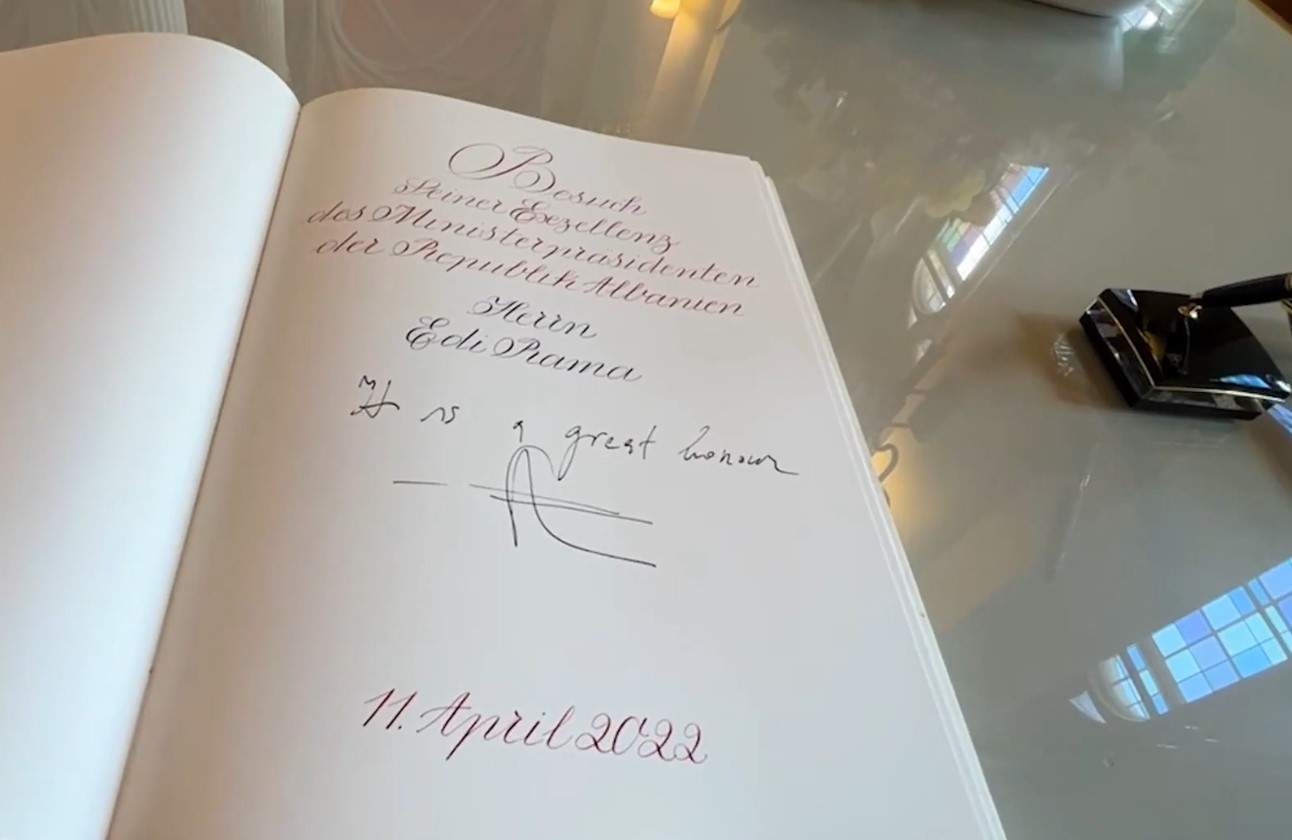 Besuch
Seiner Exzellenz
des Ministerpräsidenten
der Republik Albanien
Herrn
Edi Rama
It is a great honour
11. April 2022